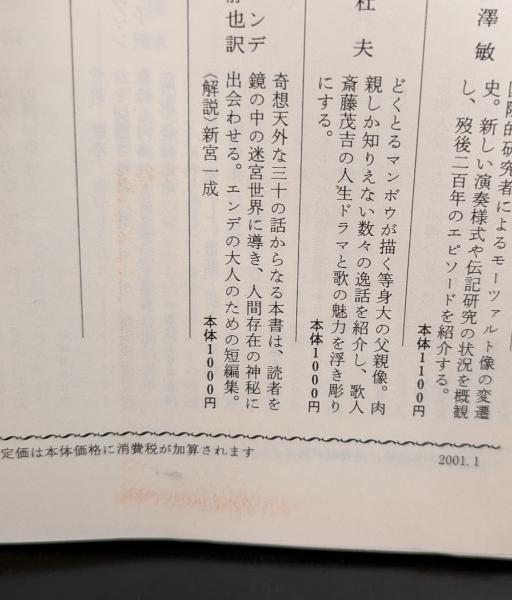 澤 敏
国際的研究者によるモーツァルト像の変遷
史。新しい演奏様式や伝記研究の状況を概観
し、歿後二百年のエピソードを紹介する。
本体1100円
杜 夫
どくとるマンボウが描く等身大の父親像。肉
親しか知りえない数々の逸話を紹介し、歌人
斎藤茂吉の人生ドラマと歌の魅力を浮き彫り
にする。
本体1000円
ンデ
也訳
奇想天外な三十の話からなる本書は、読者を
鏡の中の迷宮世界に導き、人間存在の神秘に
出会わせる。エンデの大人のための短編集。
〈解説〉新宮一成
本体1000円
定価は本体価格に消費税が加算されます
2001.1